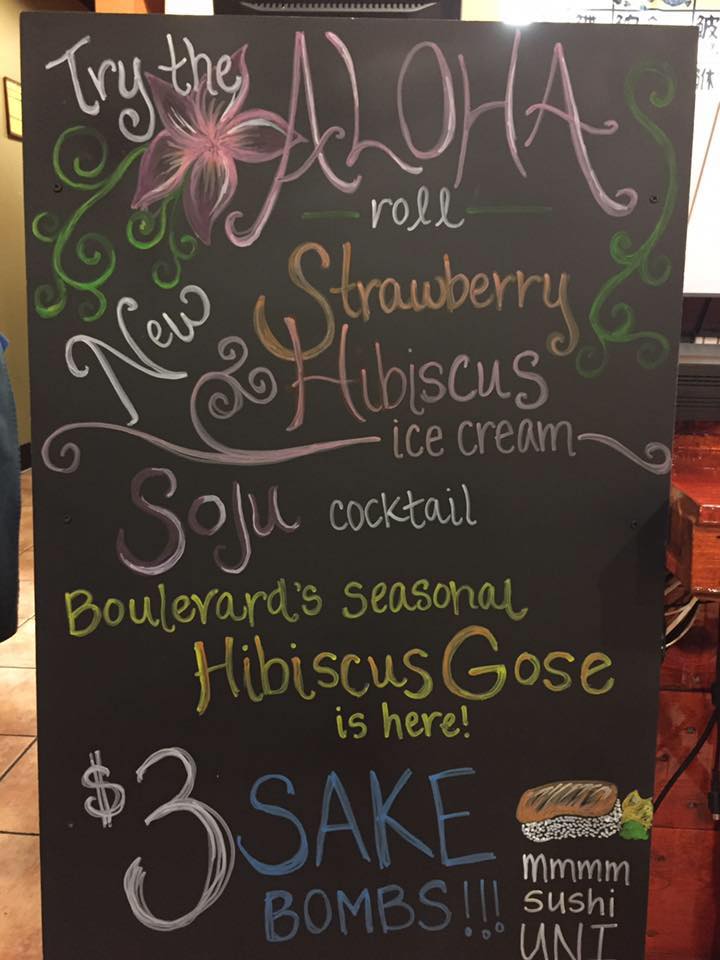 Try the ALOHA
roll
New Strawberry
Hibiscus
ice cream
Soju cocktail
Boulevard's seasonal
Hibiscus Gose
is here!
$3 SAKE
BOMBS!!!
mmmm
sushi
UNI